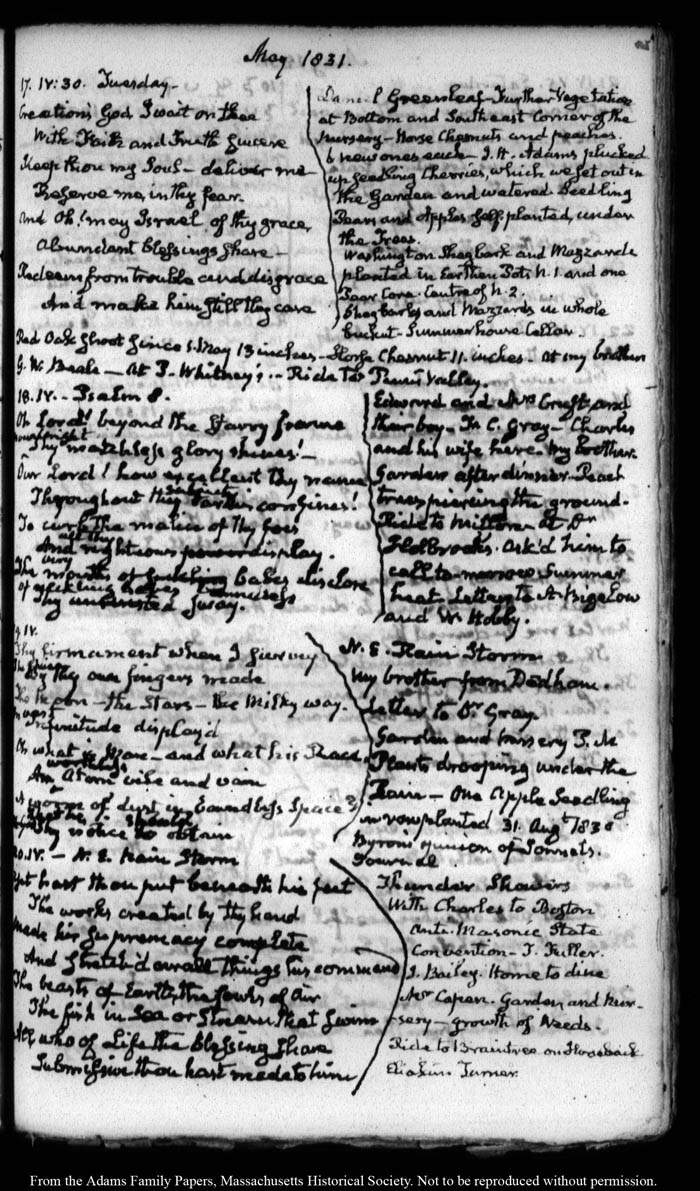 May 1831.
17. IV:30. Tuesday-
Creation's God I wait on thee
With Faith and Truth sincere
Keep thou my Soul - deliver me
Preserve me, in thy fear.
And Oh! may Israel of thy grace,
Abundant blessings share -
Redeem from trouble and disgrace
And make him still thy care
Daniel Greenleaf - Further Vegetation
at Bottom and Southeast corner of the
Nursery - Horse Chesnuts and peaches.
6 new ones each - I. H. Adams plucked
up seedling Cherries, which we set out in
the Garden and watered. Seedling
Pears and Apples self planted, under
the Trees.
Washington Shagbark and Mazzards
planted in Earthen Pots N. 1. and one
Pear Core. Centre of N. 2.
Shagbarks and Mazzards in whole
bucket - Summerhouse Cellar.
Red Oak shoot since 1. May 13 inches - Horse Chesnut 11. inches. at my brother
G. W. Beale - at T. Whitney's - Ride to Penn's Valley.
18. IV. - Psalm 8.
Oh Lord! beyond the Starry frame
Thy matchless glory shines! -
Our Lord! how excellent thy name
Throughout this Earth's confines!
To curb the malice of thy foes
And righteous power display.
The mouths of suckling babes disclose
Thy unlimited sway.
Edward and Mrs. Cruft, and
their boy - Th. C. Gray - Charles
and his wife here. My brother.
Garden after dinner. Peach
trees piercing the ground.
Ride to Milton - at Dr
Holbrook's. ask'd him to
call to-morrow. Summer
heat. Letters to A. Bigelow
and W. Hobby.
19. IV.
Thy firmament when I survey
By thy own fingers made
The Moon - the Stars - the Milky way.
Infinitude display'd
Oh what is Man - and what his Race
An Atom vile and vain
A worm of dust in boundless Space
Thy notice to obtain
N. E. Rain Storm
My brother from Dedham.
Letter to Dr. Gray.
Garden and nursery P.M.
Plants drooping under the
Rain - One Apple Seedling
in row planted 31. Augt 1830
Byron's opinion of Sonnets.
Journal.
20. IV. - N. E. Rain Storm
Yet hast thou put beneath his feet
The works created by thy hand
Made his supremacy complete
And stretch'd o'er all things his command
The beasts of Earth, the fowls of Air
The fish in Sea or Stream that swim
All, who of Life the blessing share
Submissive thou hast made to him
Thunder Showers
With Charles to Boston
Anti-Masonic State
Convention - T. Fuller.
J. Bailey. Home to dine
Mr Capen. Garden, and Nur-
sery - growth of Weeds.
Ride to Braintree on Horseback
Eliakim Turner.
From the Adams Family Papers, Massachusetts Historical Society. Not to be reproduced without permission.